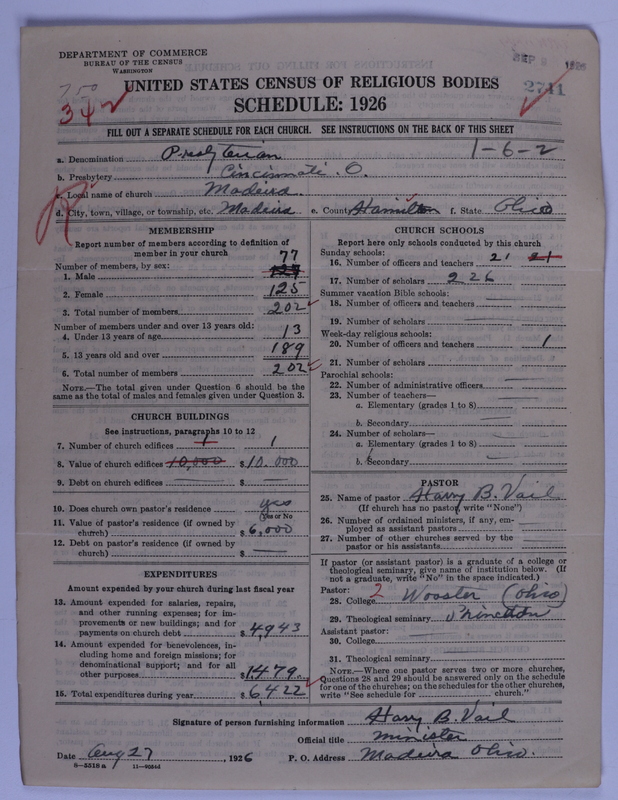 DEPARTMENT OF COMMERCE
BUREAU OF THE CENSUS
WASHINGTON
2741
342
UNITED STATES CENSUS OF RELIGIOUS BODIES
SCHEDULE: 1926
FILL OUT A SEPARATE SCHEDULE FOR EACH CHURCH. SEE INSTRUCTIONS ON THE BACK OF THIS SHEET
1-6-2
a. Denomination Presbyterian
b. Presbytery Cincinnati. O.
c. Local name of church Madeira
d. City, town, village, or township, etc. Madeira e. County Hamilton f. State Ohio
MEMBERSHIP
Report number of members according to definition of
member in your church
Number of members, by sex:
1. Male 77
2. Female 125
3. Total number of members 202
Number of members under and over 13 years old:
4. Under 13 years of age 13
5. 13 years old and over 189
6. Total number of members 202
NOTE.—The total given under Question 6 should be the
same as the total of males and females given under Question 3.
CHURCH BUILDINGS
See instructions, paragraphs 10 to 12
7. Number of church edifices 1 1
8. Value of church edifices 10,000 $10.000
9. Debt on church edifices — $ —
10. Does church own pastor's residence yes
(Yes or No
11. Value of pastor's residence (if owned by
church) $6,000
12. Debt on pastor's residence (if owned by
church) $ —
EXPENDITURES
Amount expended by your church during last fiscal year
13. Amount expended for salaries, repairs,
and other running expenses; for im-
provements or new buildings; and for
payments on church debt $4943
14. Amount expended for benevolences, in-
cluding home and foreign missions; for
denominational support; and for all
other purposes $1479
15. Total expenditures during year $6,422
CHURCH SCHOOLS
Report here only schools conducted by this church
Sunday schools:
16. Number of officers and teachers 21 21
17. Number of scholars 226
Summer vacation Bible schools:
18. Number of officers and teachers —
19. Number of scholars —
Week-day religious schools:
20. Number of officers and teachers 1
21. Number of scholars —
Parochial schools:
22. Number of administrative officers —
23. Number of teachers—
a. Elementary (grades 1 to 8) —
b. Secondary —
24. Number of scholars—
a. Elementary (grades 1 to 8) —
b. Secondary —
PASTOR
25. Name of pastor Harry B. Vail
(If church has no pastor, write "None")
26. Number of ordained ministers, if any, em-
ployed as assistant pastors —
27. Number of other churches served by the
pastor or his assistants —
If pastor (or assistant pastor) is a graduate of a college or
theological seminary, give name of institution below. (If
not a graduate, write "No" in the space indicated.)
Pastor:
28. College 2 Wooster (Ohio)
29. Theological seminary Princeton
Assistant pastor:
30. College —
31. Theological seminary —
NOTE.—Where one pastor serves two or more churches,
Questions 28 and 29 should be answered only on the schedule
for one of the churches; on the schedules for the other churches,
write "See schedule for church."
Signature of person furnishing information Harry B. Vail
Official title minister
Date Aug 27, 1926 P. O. Address Madeira Ohio.
8—5518 a